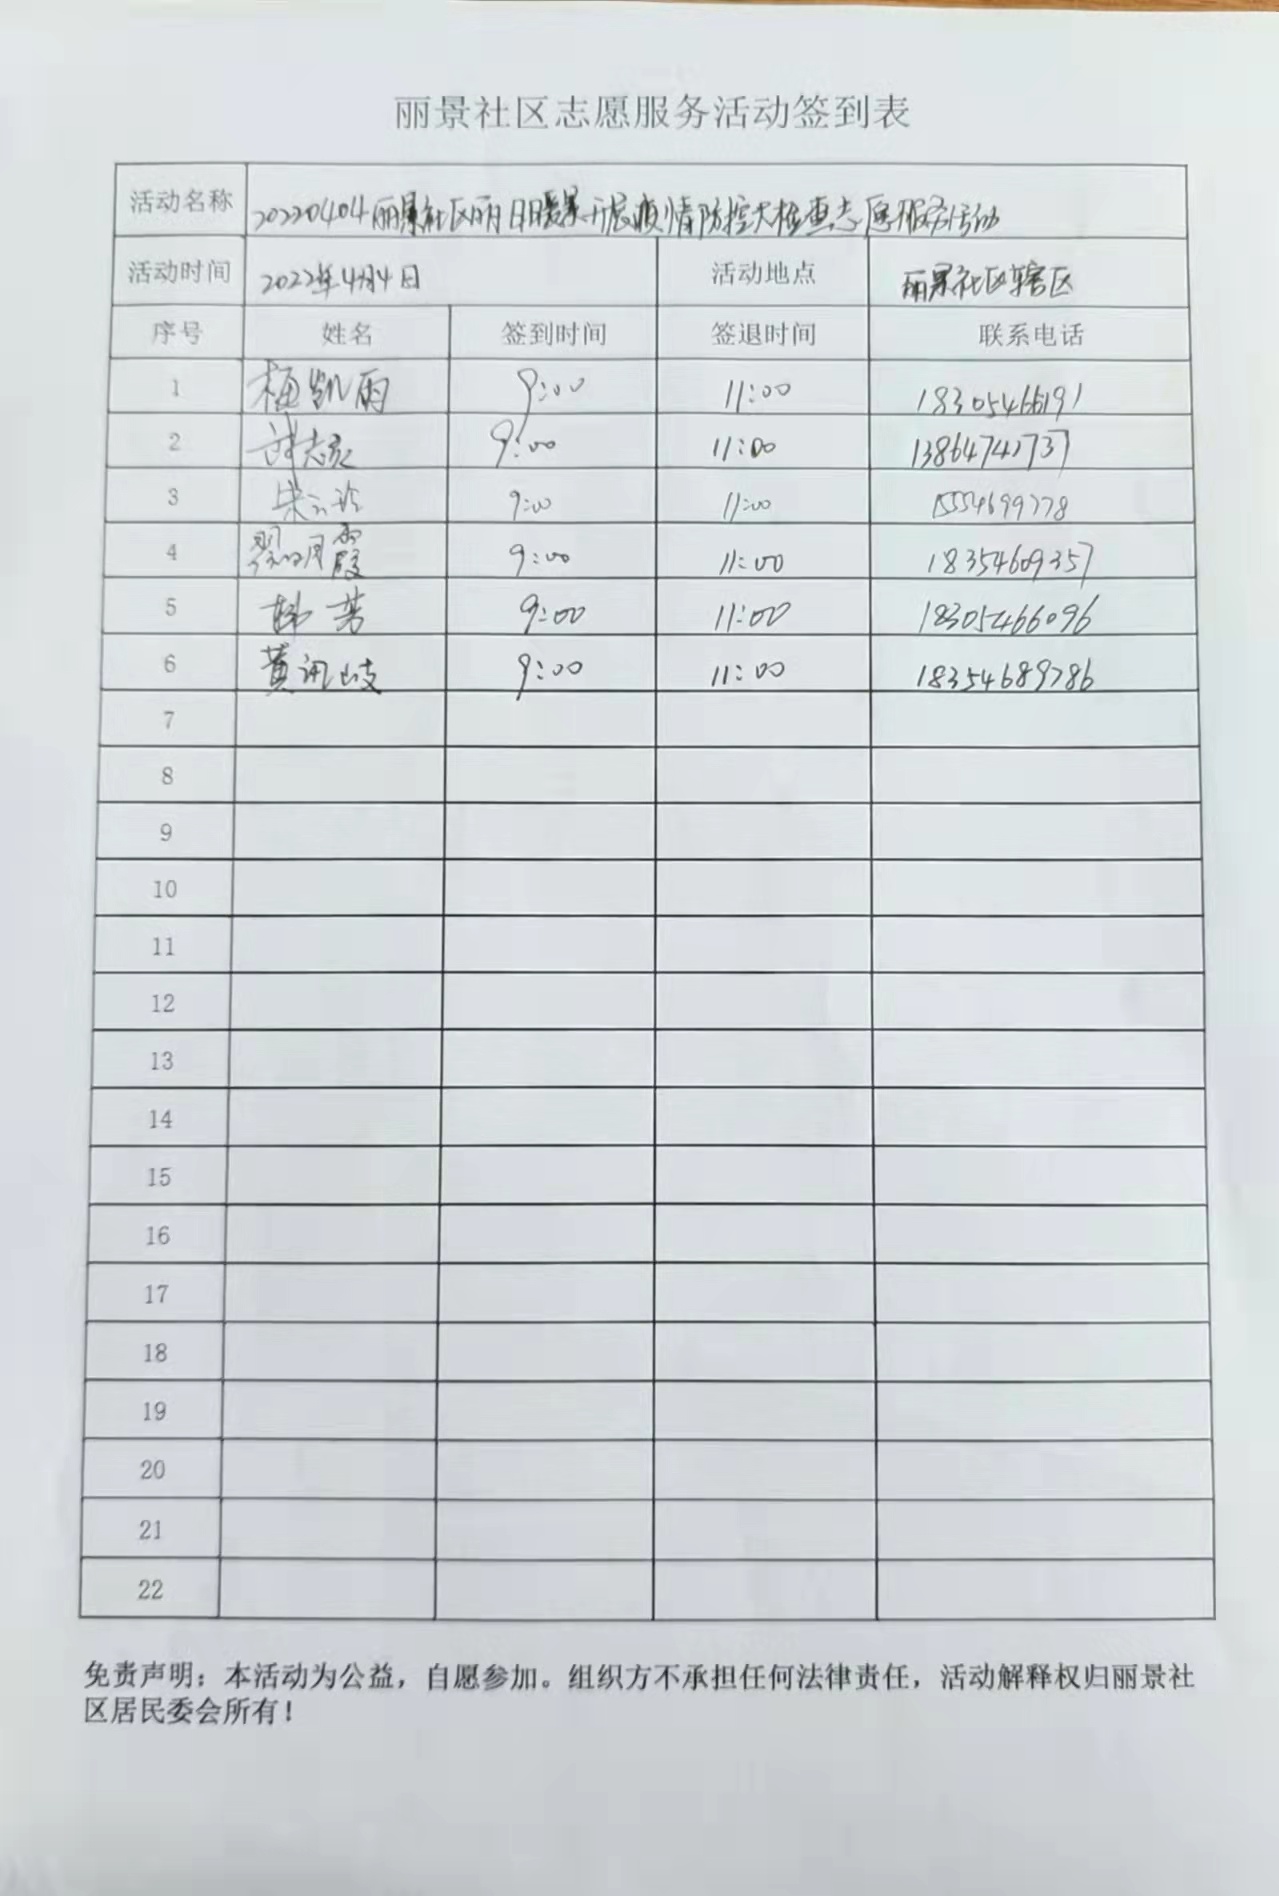 丽景社区志愿服务活动签到表
活动名称 20220404丽景社区丽日暖景开展疫情防控大检查志愿服务活动
活动时间 2022年4月4日 活动地点 丽景社区辖区
序号 姓名 签到时间 签退时间 联系电话
1 梅凯雨 9:00 11:00
2 9:00 11:00
3 9:00 11:00 15554699778
4 9:00 11:00 18354609357
5 韩芳 9:00 11:00 18305466096
6 9:00 11:00 18354689786
7
8
9
10
11
12
13
14
15
16
17
18
19
20
21
22
免责声明：本活动为公益，自愿参加。组织方不承担任何法律责任，活动解释权归丽景社
区居民委会所有！